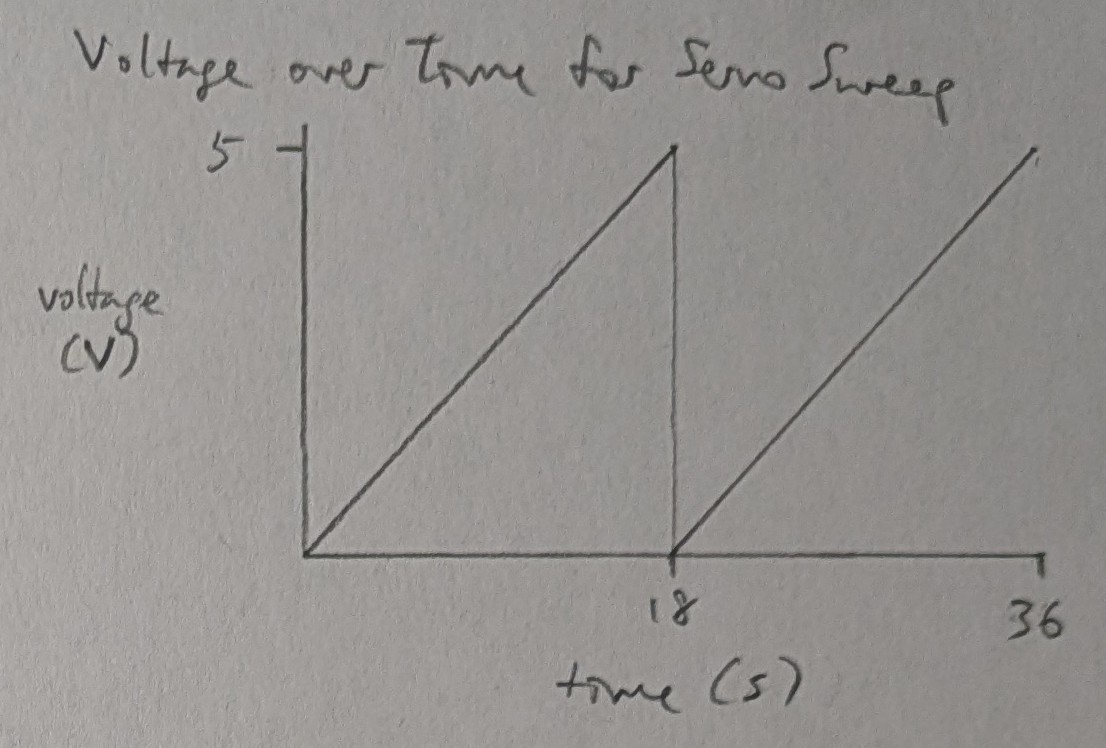 Voltage over Time for Servo Sweep
5
voltage
(V)
18
36
time (s)